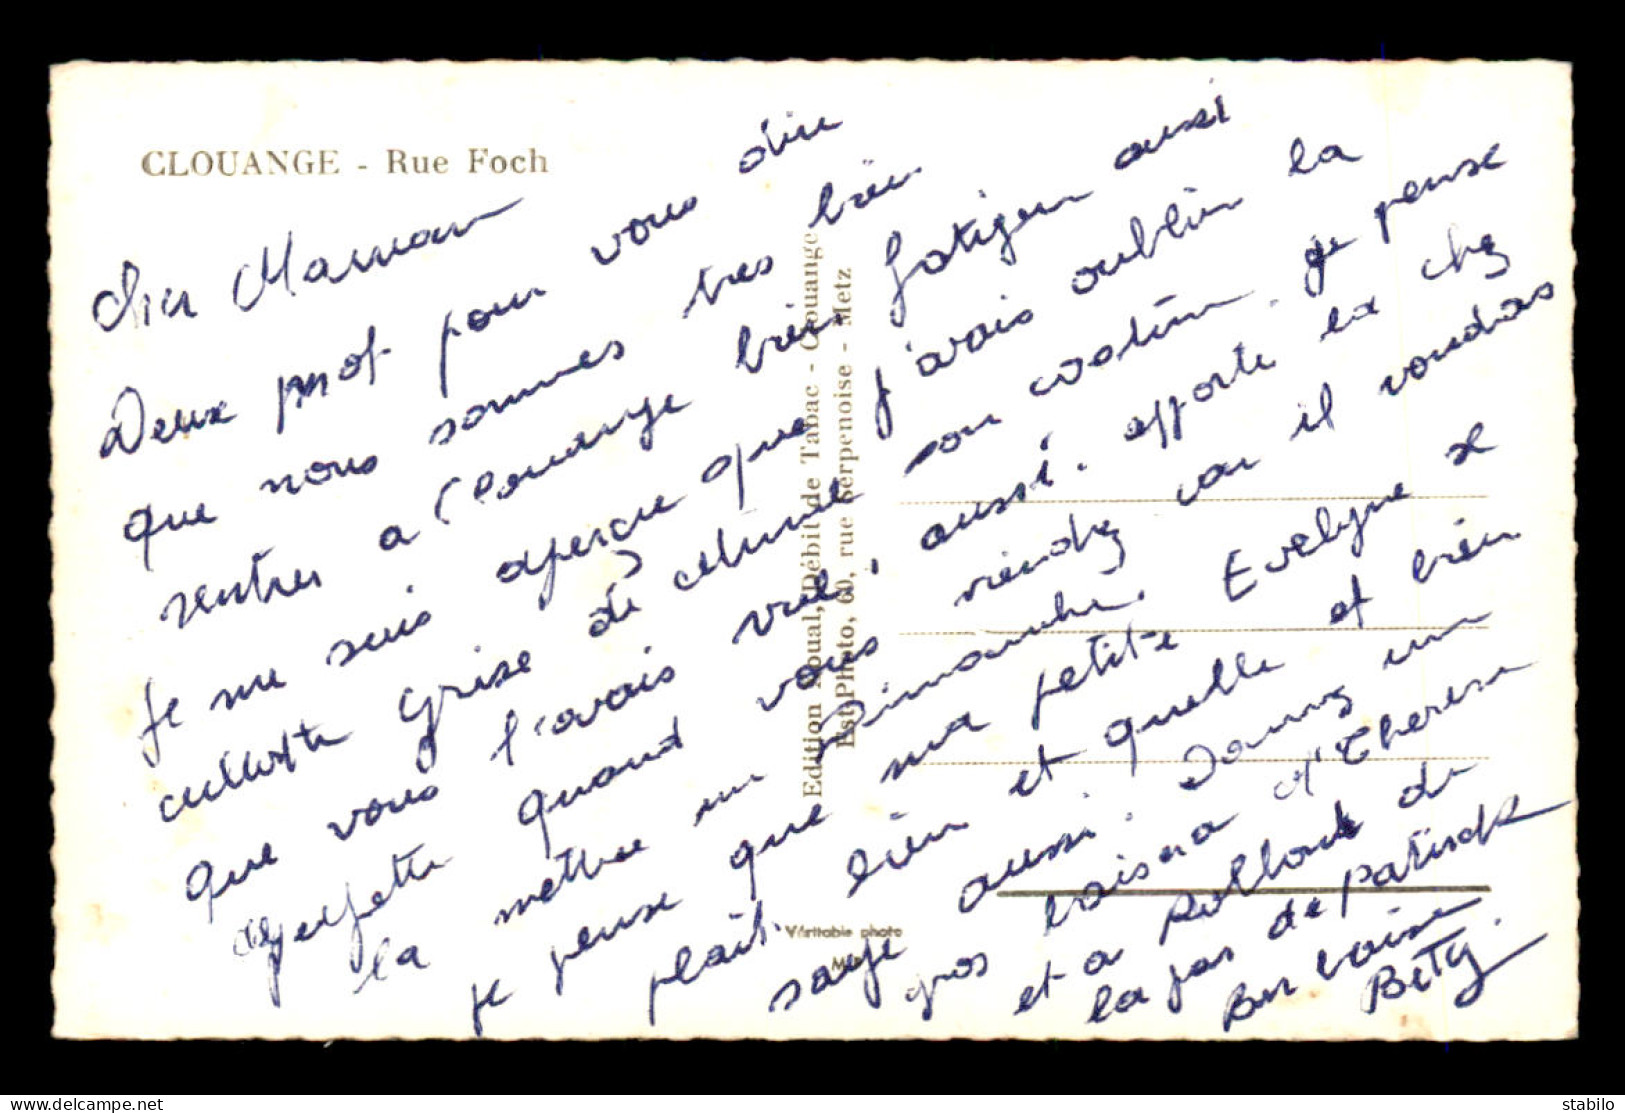 CLOUANGE - Rue Foch
Cher Maman
Deux mot pour vous dire
que nous sommes tres bien
rentrer a Clouange bien fatiguer aussi
je me suis aperçue que j'avais oublier la
culotte grise de son costume. je pense
que vous l'avais vue, aussi. apporte la chez
quand vous viendrez car il voudras
la mettre un Dimanche.
je pense que ma petite Evelyne se
plait bien et quelle et bien
sage aussi. Donnez un
gros baiser a Therese
et a de
la par de Patrick
Bon baiser
Bety.
Edition Noual, Débit de Tabac - Clouange
Est-Photo, 60, rue Serpenoise - Metz
Véritable photo
stabilo
delcampe.net